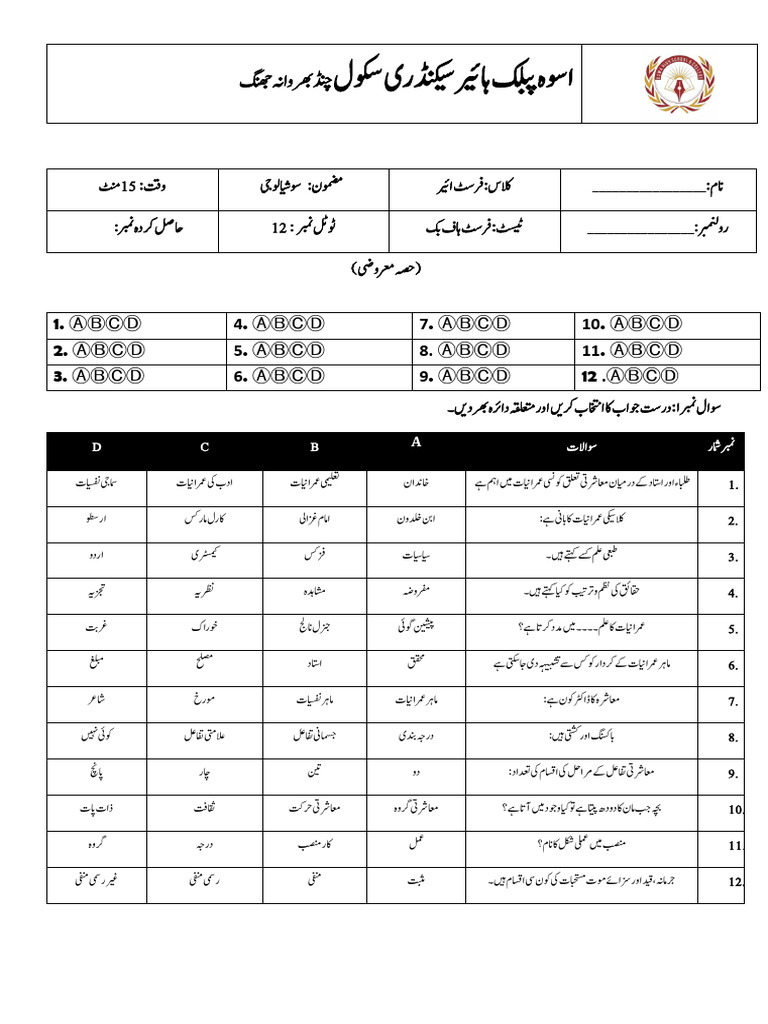 اسوہ پبلک ہائیر سیکنڈری سکول چنڈ بھروانہ جھنگ
نام:________________ کلاس: فرسٹ ائیر مضمون: سوشیالوجی وقت: 15 منٹ
رولنمبر:_______________ ٹیسٹ: فرسٹ ہاف بک ٹوٹل نمبر : 12 حاصل کردہ نمبر:
(حصہ معروضی)
1. ⒶⒷⒸⒹ 4. ⒶⒷⒸⒹ 7. ⒶⒷⒸⒹ 10. ⒶⒷⒸⒹ
2. ⒶⒷⒸⒹ 5. ⒶⒷⒸⒹ 8. ⒶⒷⒸⒹ 11. ⒶⒷⒸⒹ
3. ⒶⒷⒸⒹ 6. ⒶⒷⒸⒹ 9. ⒶⒷⒸⒹ 12 .ⒶⒷⒸⒹ
سوال نمبر ا: درست جواب کا انتخاب کریں اور متعلقہ دائرہ بھر دیں۔
نمبر شمار سوالات A B C D
1. طلباء اور استاد کے درمیان معاشرتی تعلق کونسی عمرانیات میں اہم ہے خاندان تعلیمی عمرانیات ادب کی عمرانیات سماجی نفسیات
2. کلاسیکی عمرانیات کا بانی ہے: ابن خلدون امام غزالی کارل مارکس ارسطو
3. طبعی علم کسے کہتے ہیں۔ سیاسیات فزکس کیمسٹری اردو
4. حقائق کی نظم و ترتیب کو کیا کہتے ہیں۔ مفروضہ مشاہدہ نظریہ تجزیہ
5. عمرانیات کا علم ۔۔۔۔ میں مدد کرتا ہے؟ پیشین گوئی جنرل نالج خوراک غربت
6. ماہر عمرانیات کے کردار کو کس سے تشبیہہ دی جاسکتی ہے محقق استاد مصلح مبلغ
7. معاشرہ کا ڈاکٹر کون ہے: ماہر عمرانیات ماہر نفسیات مورخ شاعر
8. باکسنگ اور کشتی ہیں: درجہ بندی جسمانی تفاعل علامتی تفاعل کوئی نہیں
9. معاشرتی تفاعل کے مراحل کی اقسام کی تعداد: دو تین چار پانچ
10. بچہ جب ماں کا دودھ پیتا ہے تو کیا وجود میں آتا ہے؟ معاشرتی گروہ معاشرتی حرکت ثقافت ذات پات
11. منصب میں عملی شکل کا نام؟ عمل کار منصب درجہ گروہ
12. جرمانہ، قید اور سزائے موت مستحبات کی کون سی اقسام ہیں۔ مثبت منفی رسمی منفی غیر رسمی منفی